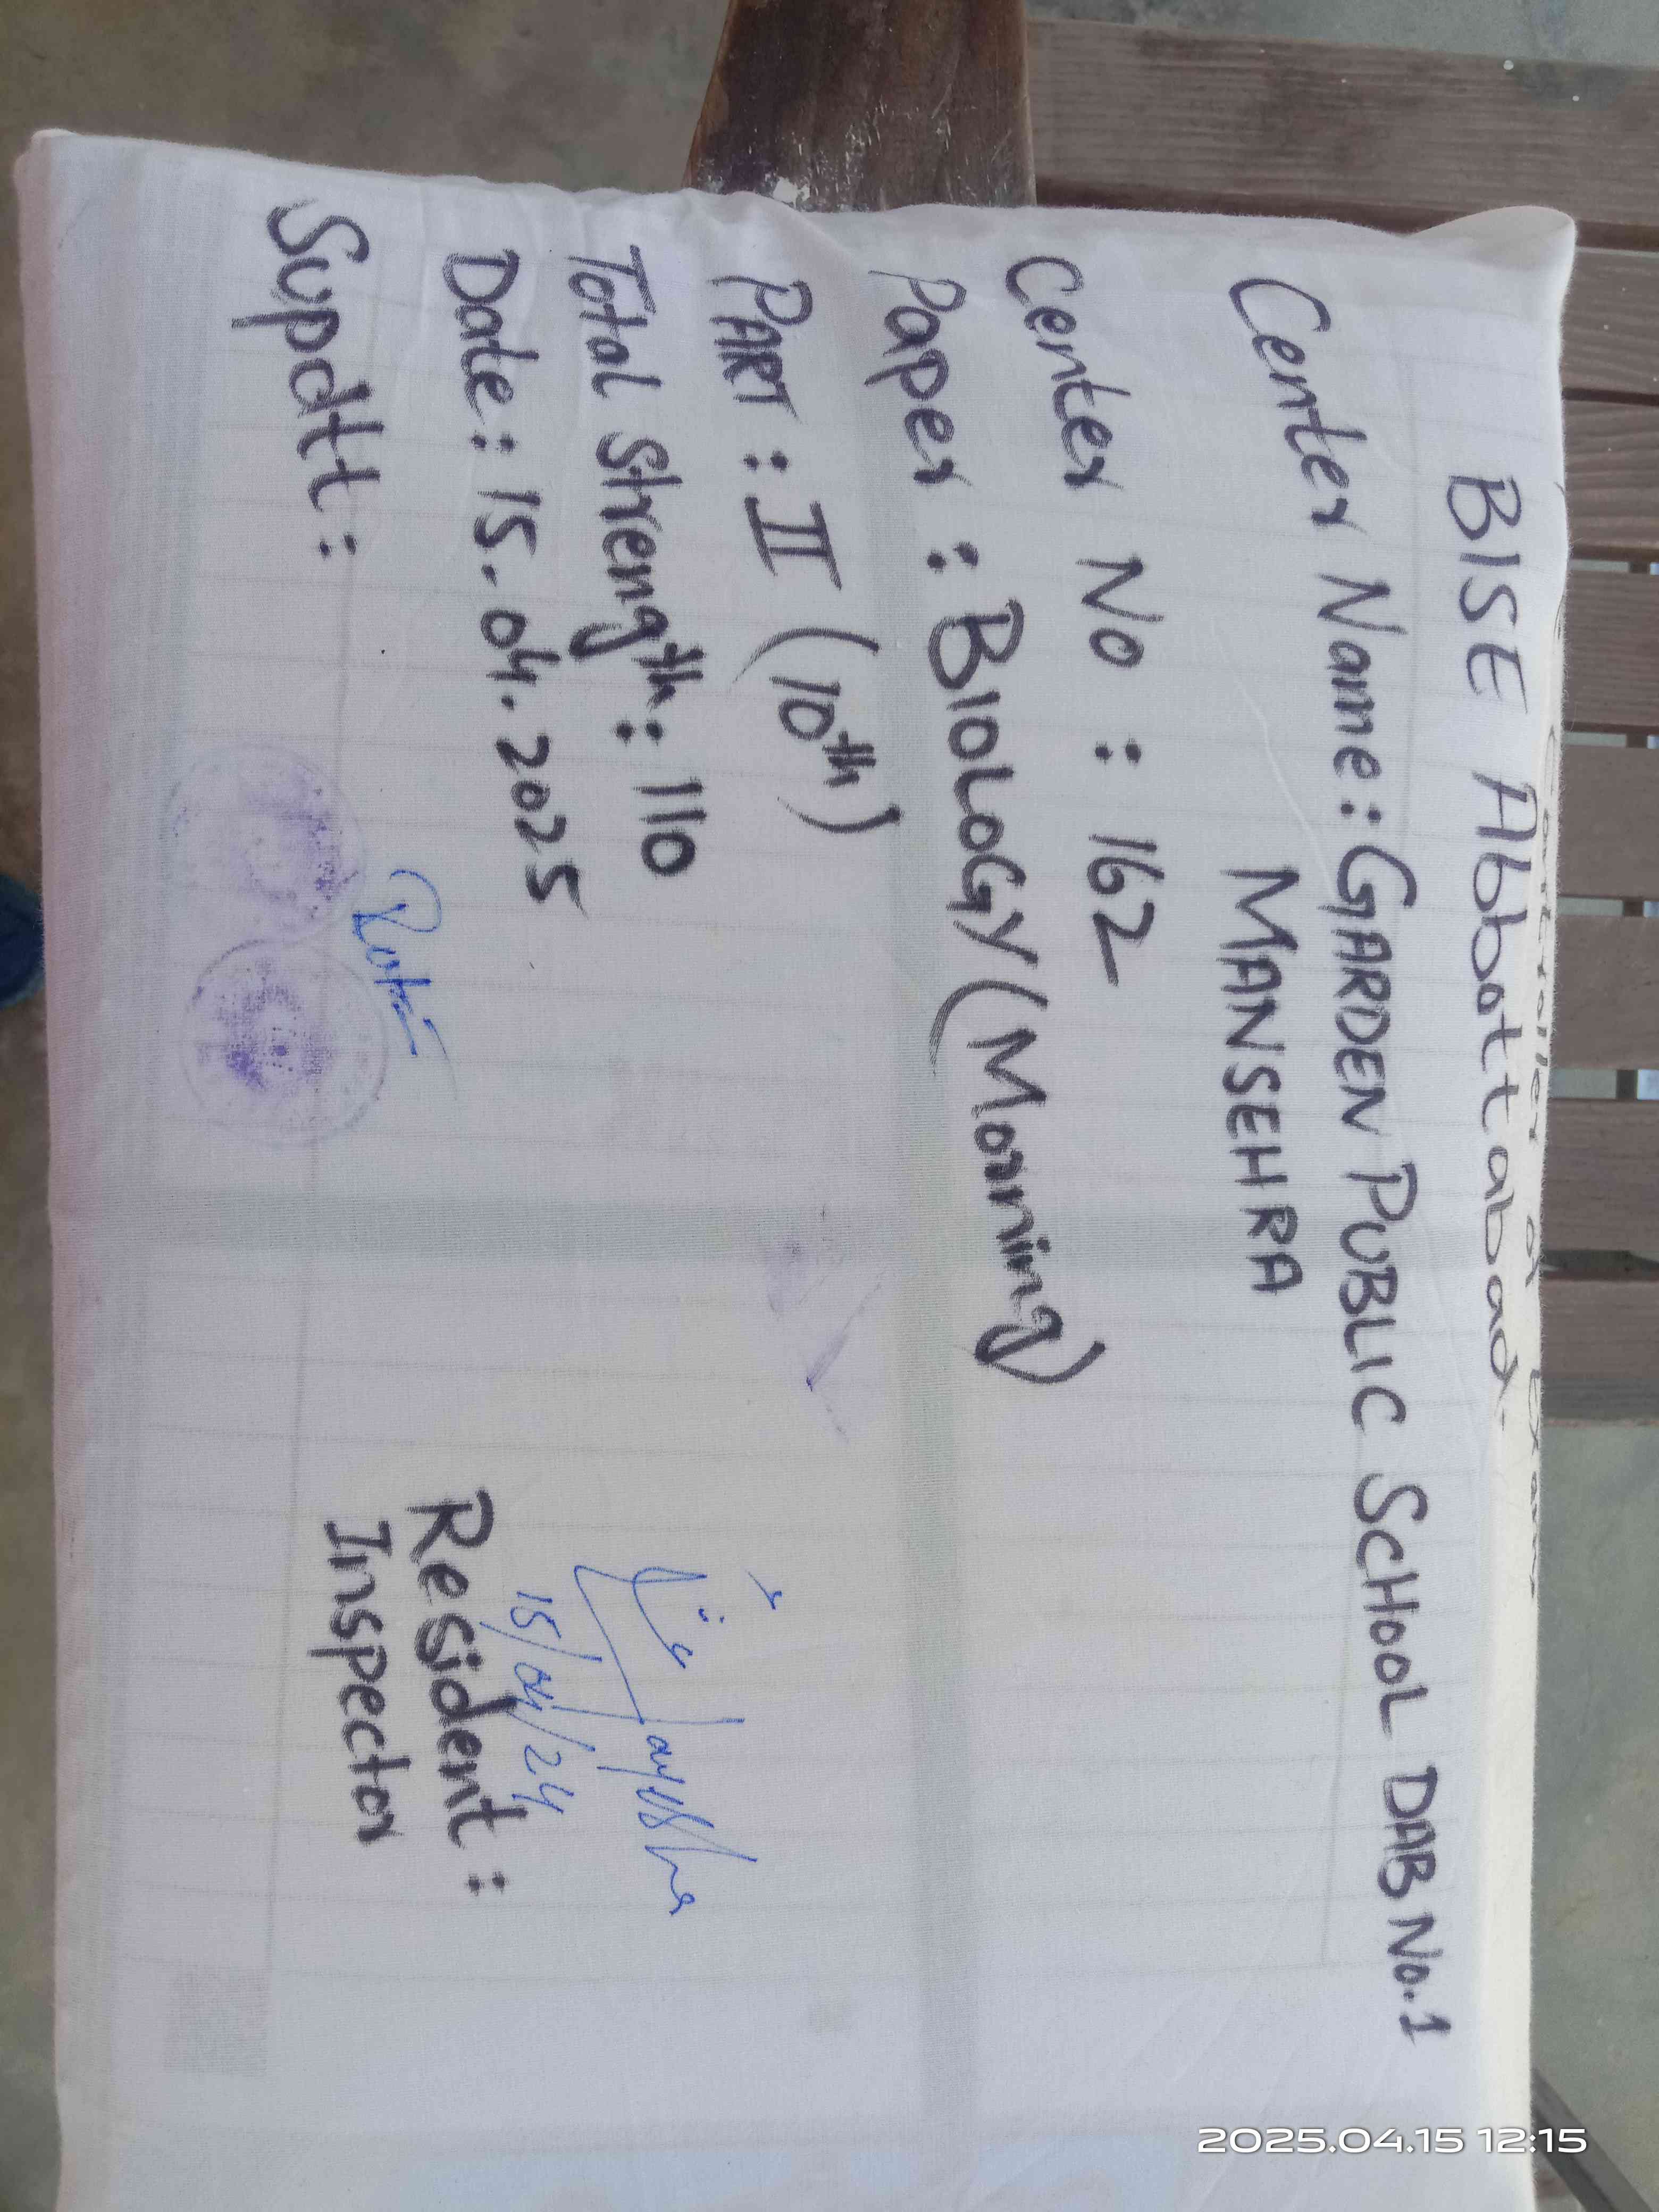 Controller of Exam
BISE Abbottabad.
Center Name: GARDEN PUBLIC SCHOOL DAB No.1
MANSEHRA
Center No : 162
Paper : BIOLOGY (Morning)
PART : II (10th)
Total Strength : 110
Date : 15.04.2025
Supdtt :
15/04/24
Resident :
Inspector
2025.04.15 12:15